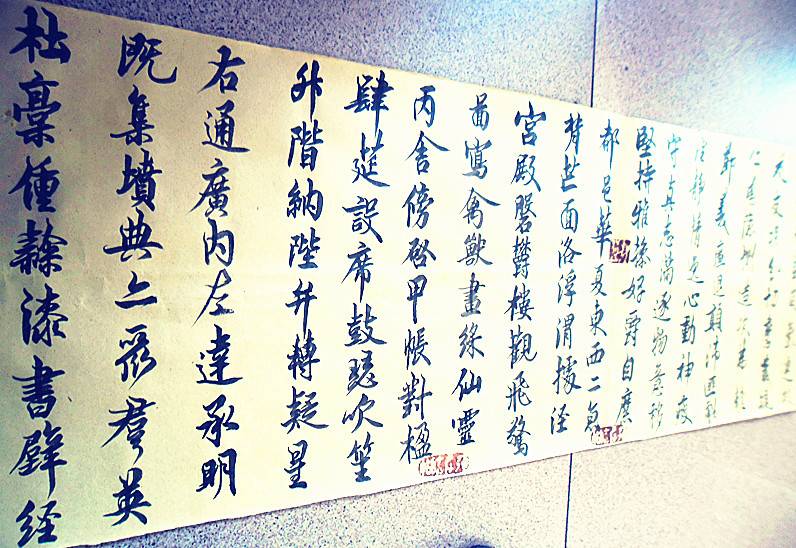 仁慈隱惻造次弗離
節義廉退顛沛匪虧
性靜情逸心動神疲
守真志滿逐物意移
堅持雅操好爵自縻
都邑華夏東西二京
背芒面洛浮渭據涇
宮殿磐鬱樓觀飛驚
圖寫禽獸畫綵仙靈
丙舍傍啟甲帳對楹
肆筵設席鼓瑟吹笙
升階納陛弁轉疑星
右通廣內左達承明
既集墳典亦聚羣英
杜稾鍾隸漆書壁經